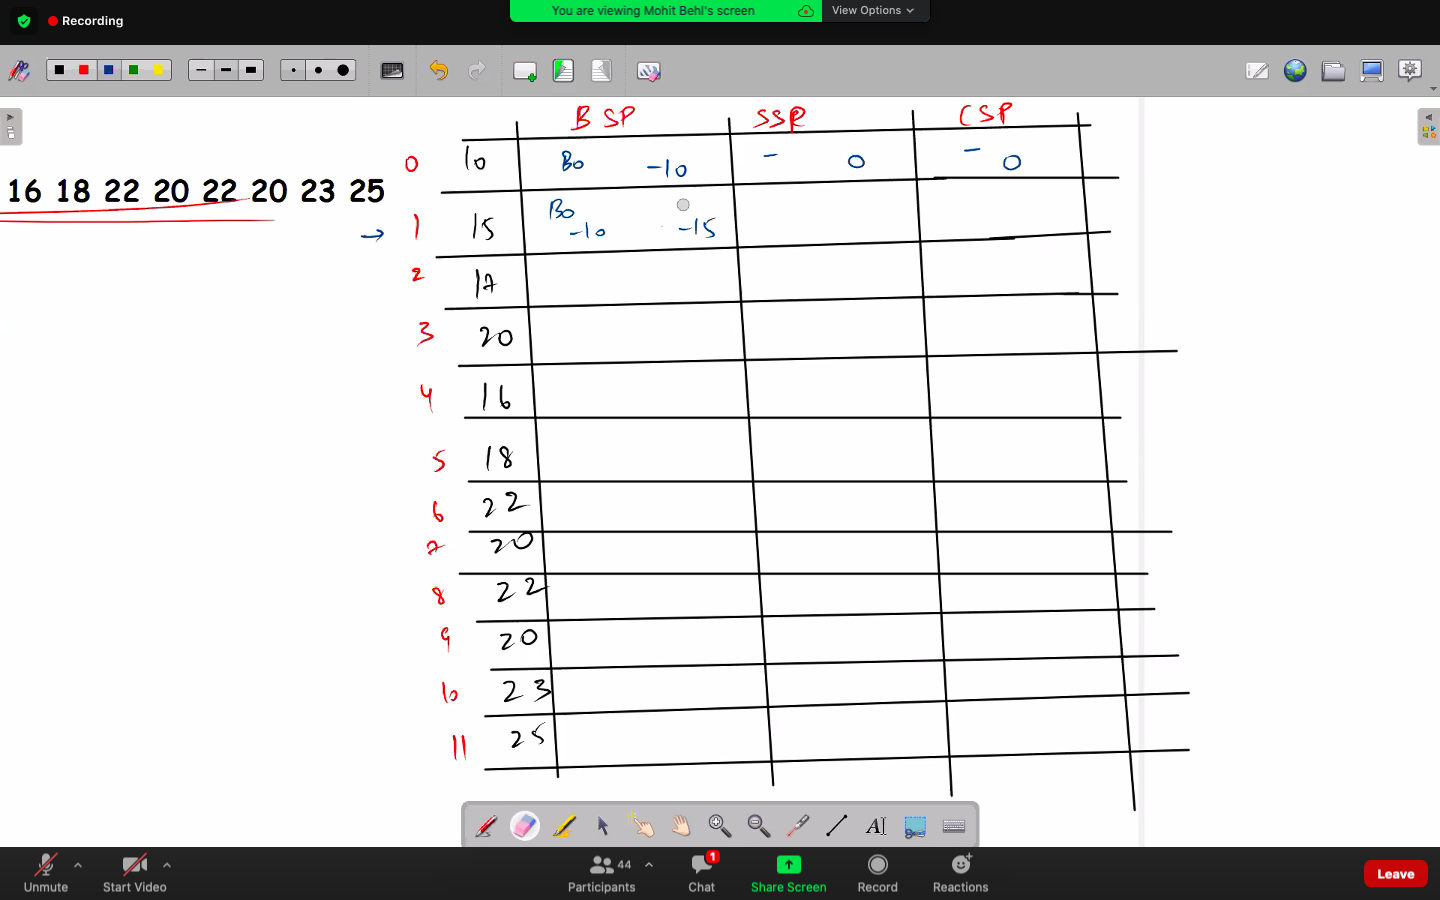 Recording
You are viewing Mohit Behl's screen
View Options
BSP SSP CSP
0 10 B0 -10 - 0 - 0
16 18 22 20 22 20 23 25
→ 1 15 B0 -10 -15
2 17
3 20
4 16
5 18
6 22
7 20
8 22
9 20
10 23
11 25
AI
Unmute
Start Video
44
Participants
1
Chat
Share Screen
Record
Reactions
Leave